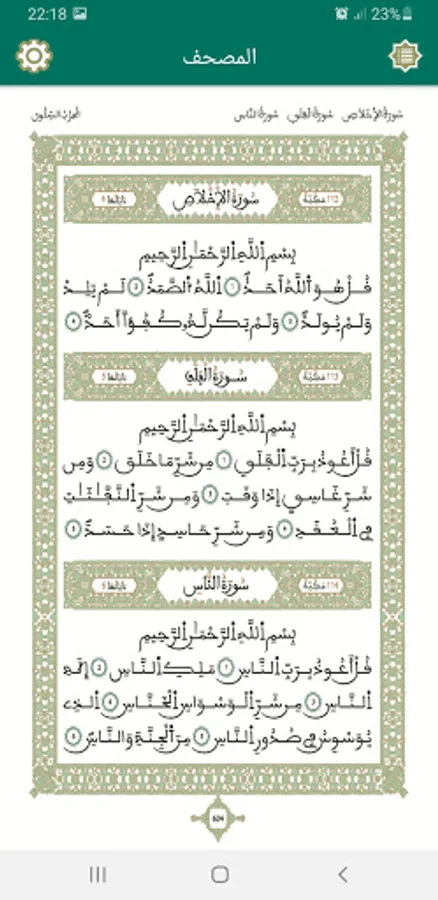 22:18 23%
المصحف
سُورَةُ الإِخْلَاصِ سُورَةُ الفَلَقِ سُورَةُ النَّاسِ
112 مَكِّيَّة سُورَةُ الإِخْلَاصِ ءَايَاتُهَا 4
بِسْمِ اللَّهِ الرَّحْمَٰنِ الرَّحِيمِ
قُلْ هُوَ اللَّهُ أَحَدٌ 1 اللَّهُ الصَّمَدُ 2 لَمْ يَلِدْ
وَلَمْ يُولَدْ 3 وَلَمْ يَكُن لَّهُ كُفُؤًا أَحَدٌ 4
113 مَكِّيَّة سُورَةُ الفَلَقِ ءَايَاتُهَا 5
بِسْمِ اللَّهِ الرَّحْمَٰنِ الرَّحِيمِ
قُلْ أَعُوذُ بِرَبِّ الْفَلَقِ 1 مِن شَرِّ مَا خَلَقَ 2 وَمِن
شَرِّ غَاسِقٍ إِذَا وَقَبَ 3 وَمِن شَرِّ النَّفَّٰثَٰتِ
فِي الْعُقَدِ 4 وَمِن شَرِّ حَاسِدٍ إِذَا حَسَدَ 5
114 مَكِّيَّة سُورَةُ النَّاسِ ءَايَاتُهَا 6
بِسْمِ اللَّهِ الرَّحْمَٰنِ الرَّحِيمِ
قُلْ أَعُوذُ بِرَبِّ النَّاسِ 1 مَلِكِ النَّاسِ 2 إِلَٰهِ
النَّاسِ 3 مِن شَرِّ الْوَسْوَاسِ الْخَنَّاسِ 4 الَّذِي
يُوَسْوِسُ فِي صُدُورِ النَّاسِ 5 مِنَ الْجِنَّةِ وَالنَّاسِ 6
604